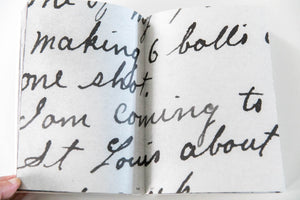 making 6 balls
one shot.
I am coming to
St Louis about